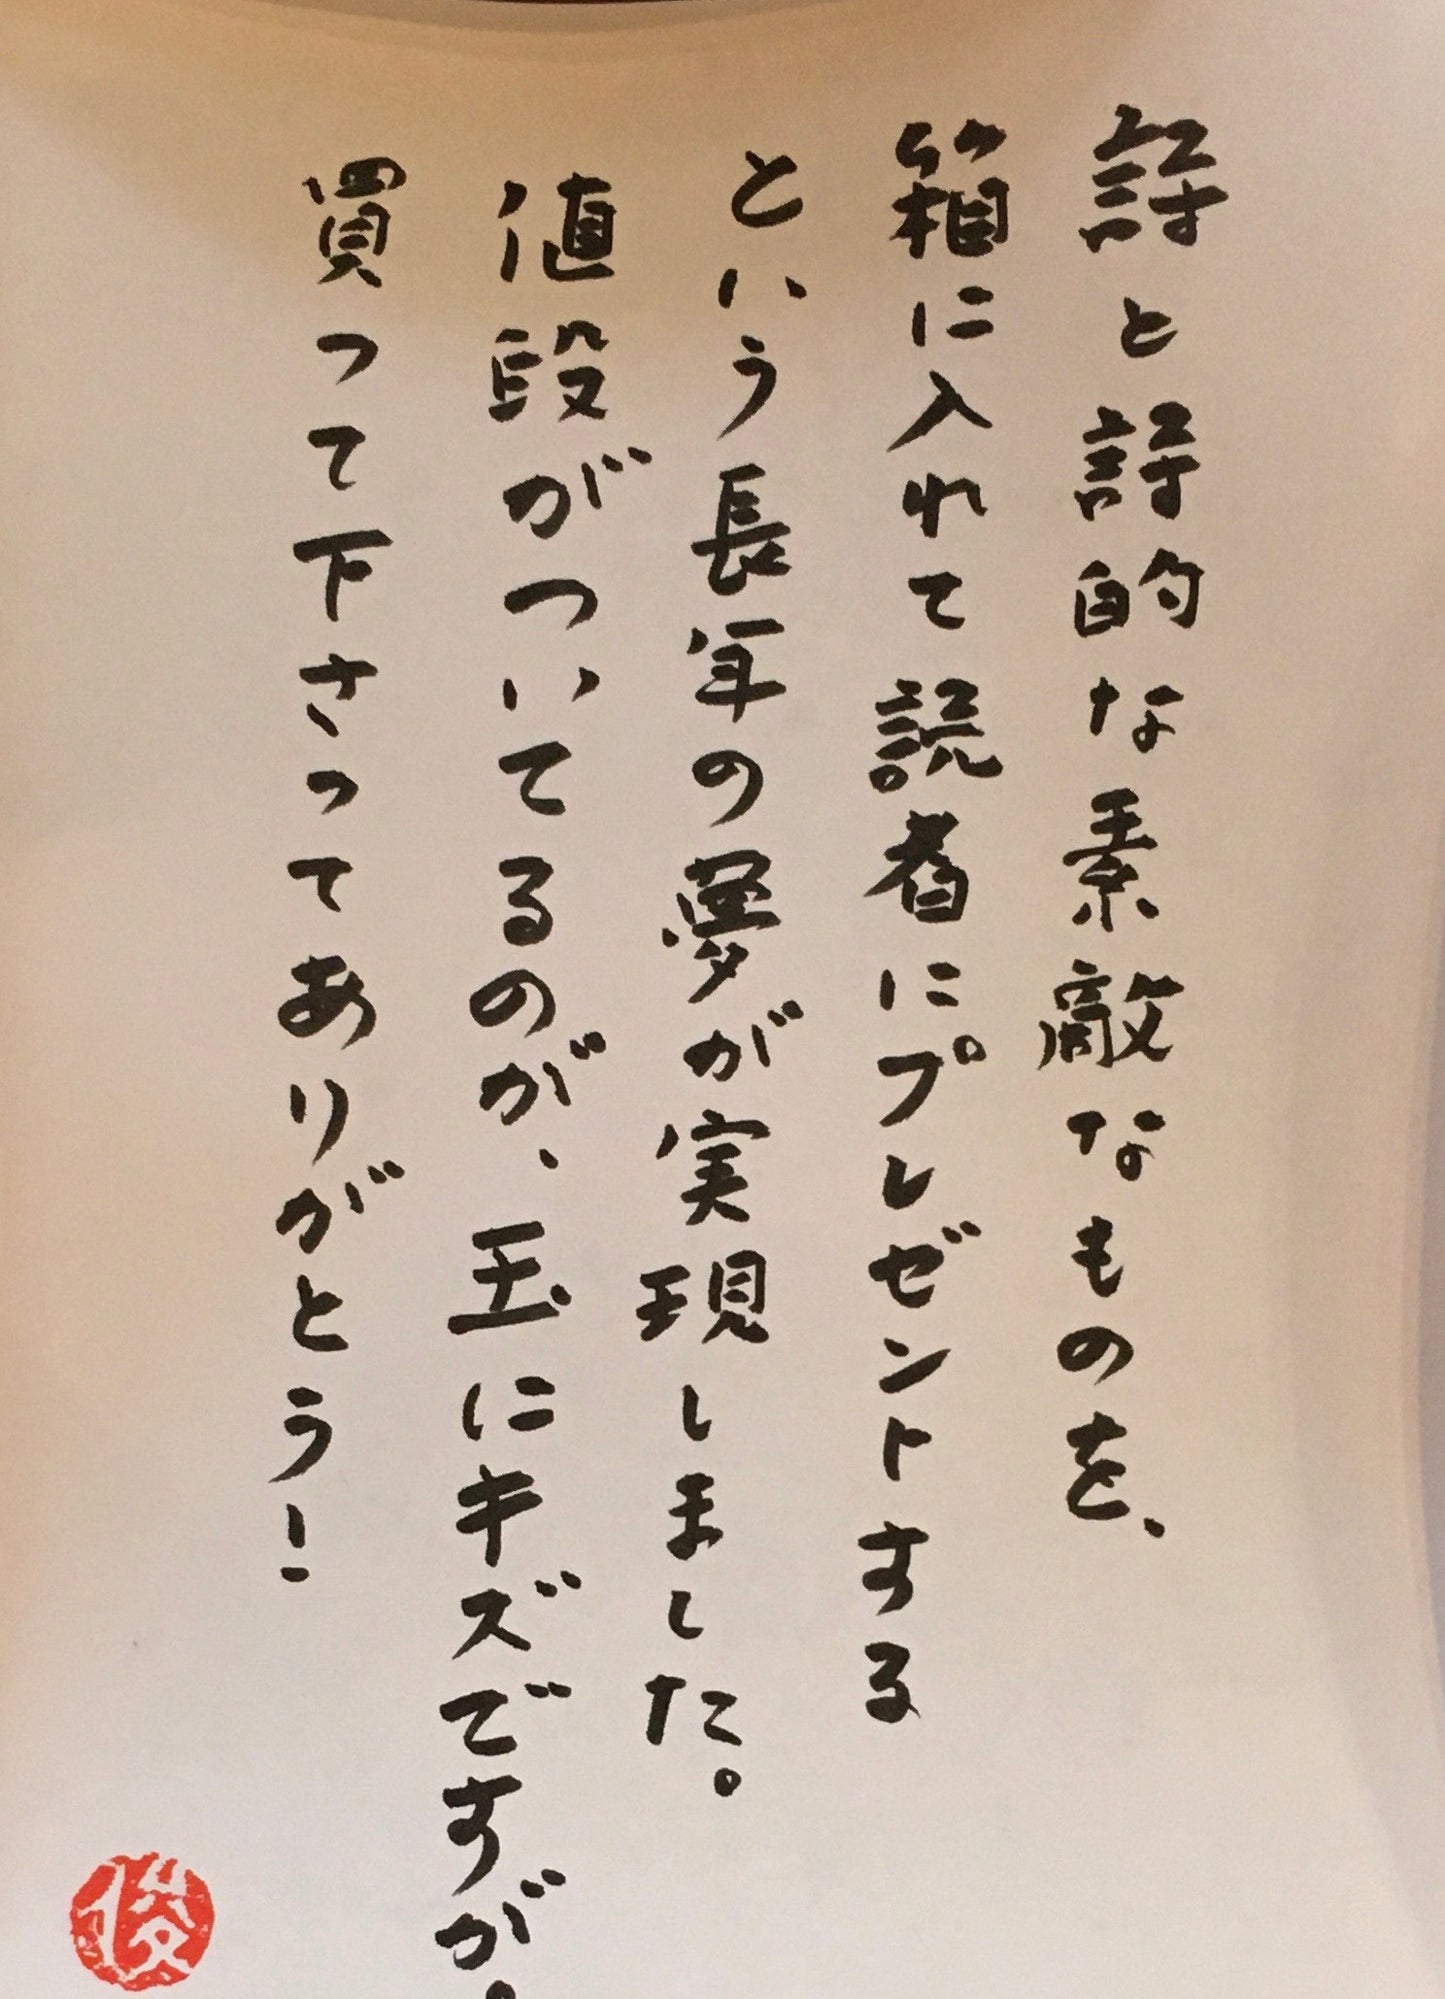 詩と詩的な素敵なものを、
箱に入れて読者にプレゼントする
という長年の夢が実現しました。
値段がついてるのが、玉にキズですが、
買って下さってありがとう!
俊